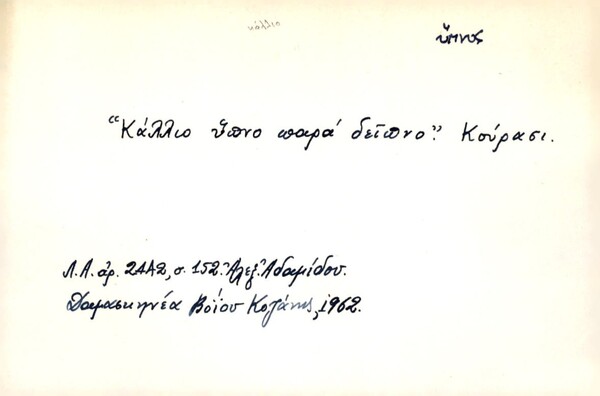 κάλλιο
ὕπνος
"Κάλλιο ὕπνο παρά δεῖπνο". Κούρασι.
Λ.Α. ἀρ. 2442, σ. 152. Ἀλεξ. Ἀδαμίδου.
Δαμασκηνέα Βοΐου Κοζάνης, 1962.